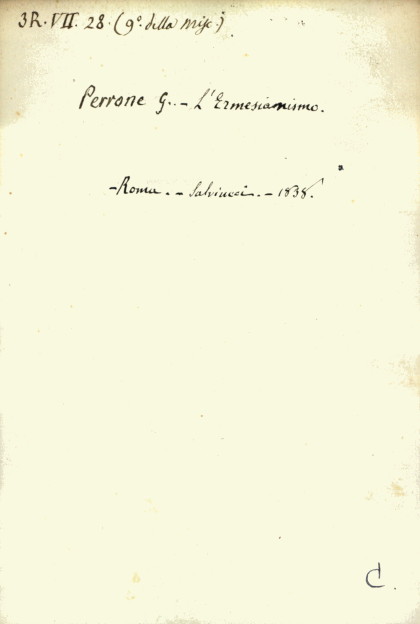 3R. VII. 28. (9º. della Misc.)
Perrone G. - L'Ermesianismo.
- Roma. - Salviucci. - 1838.
C.